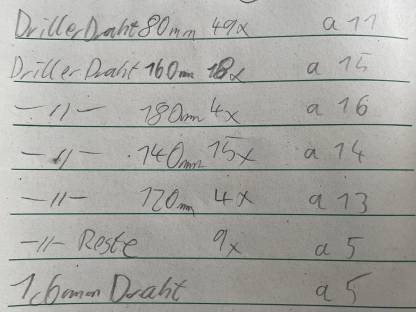 DrillerDraht 80mm 49x a 11
DrillerDraht 160mm 18x a 15
-"- 180mm 4x a 16
-"- 140mm 15x a 14
-"- 120mm 4x a 13
-"- Reste 9x a 5
1,6mm Draht a 5